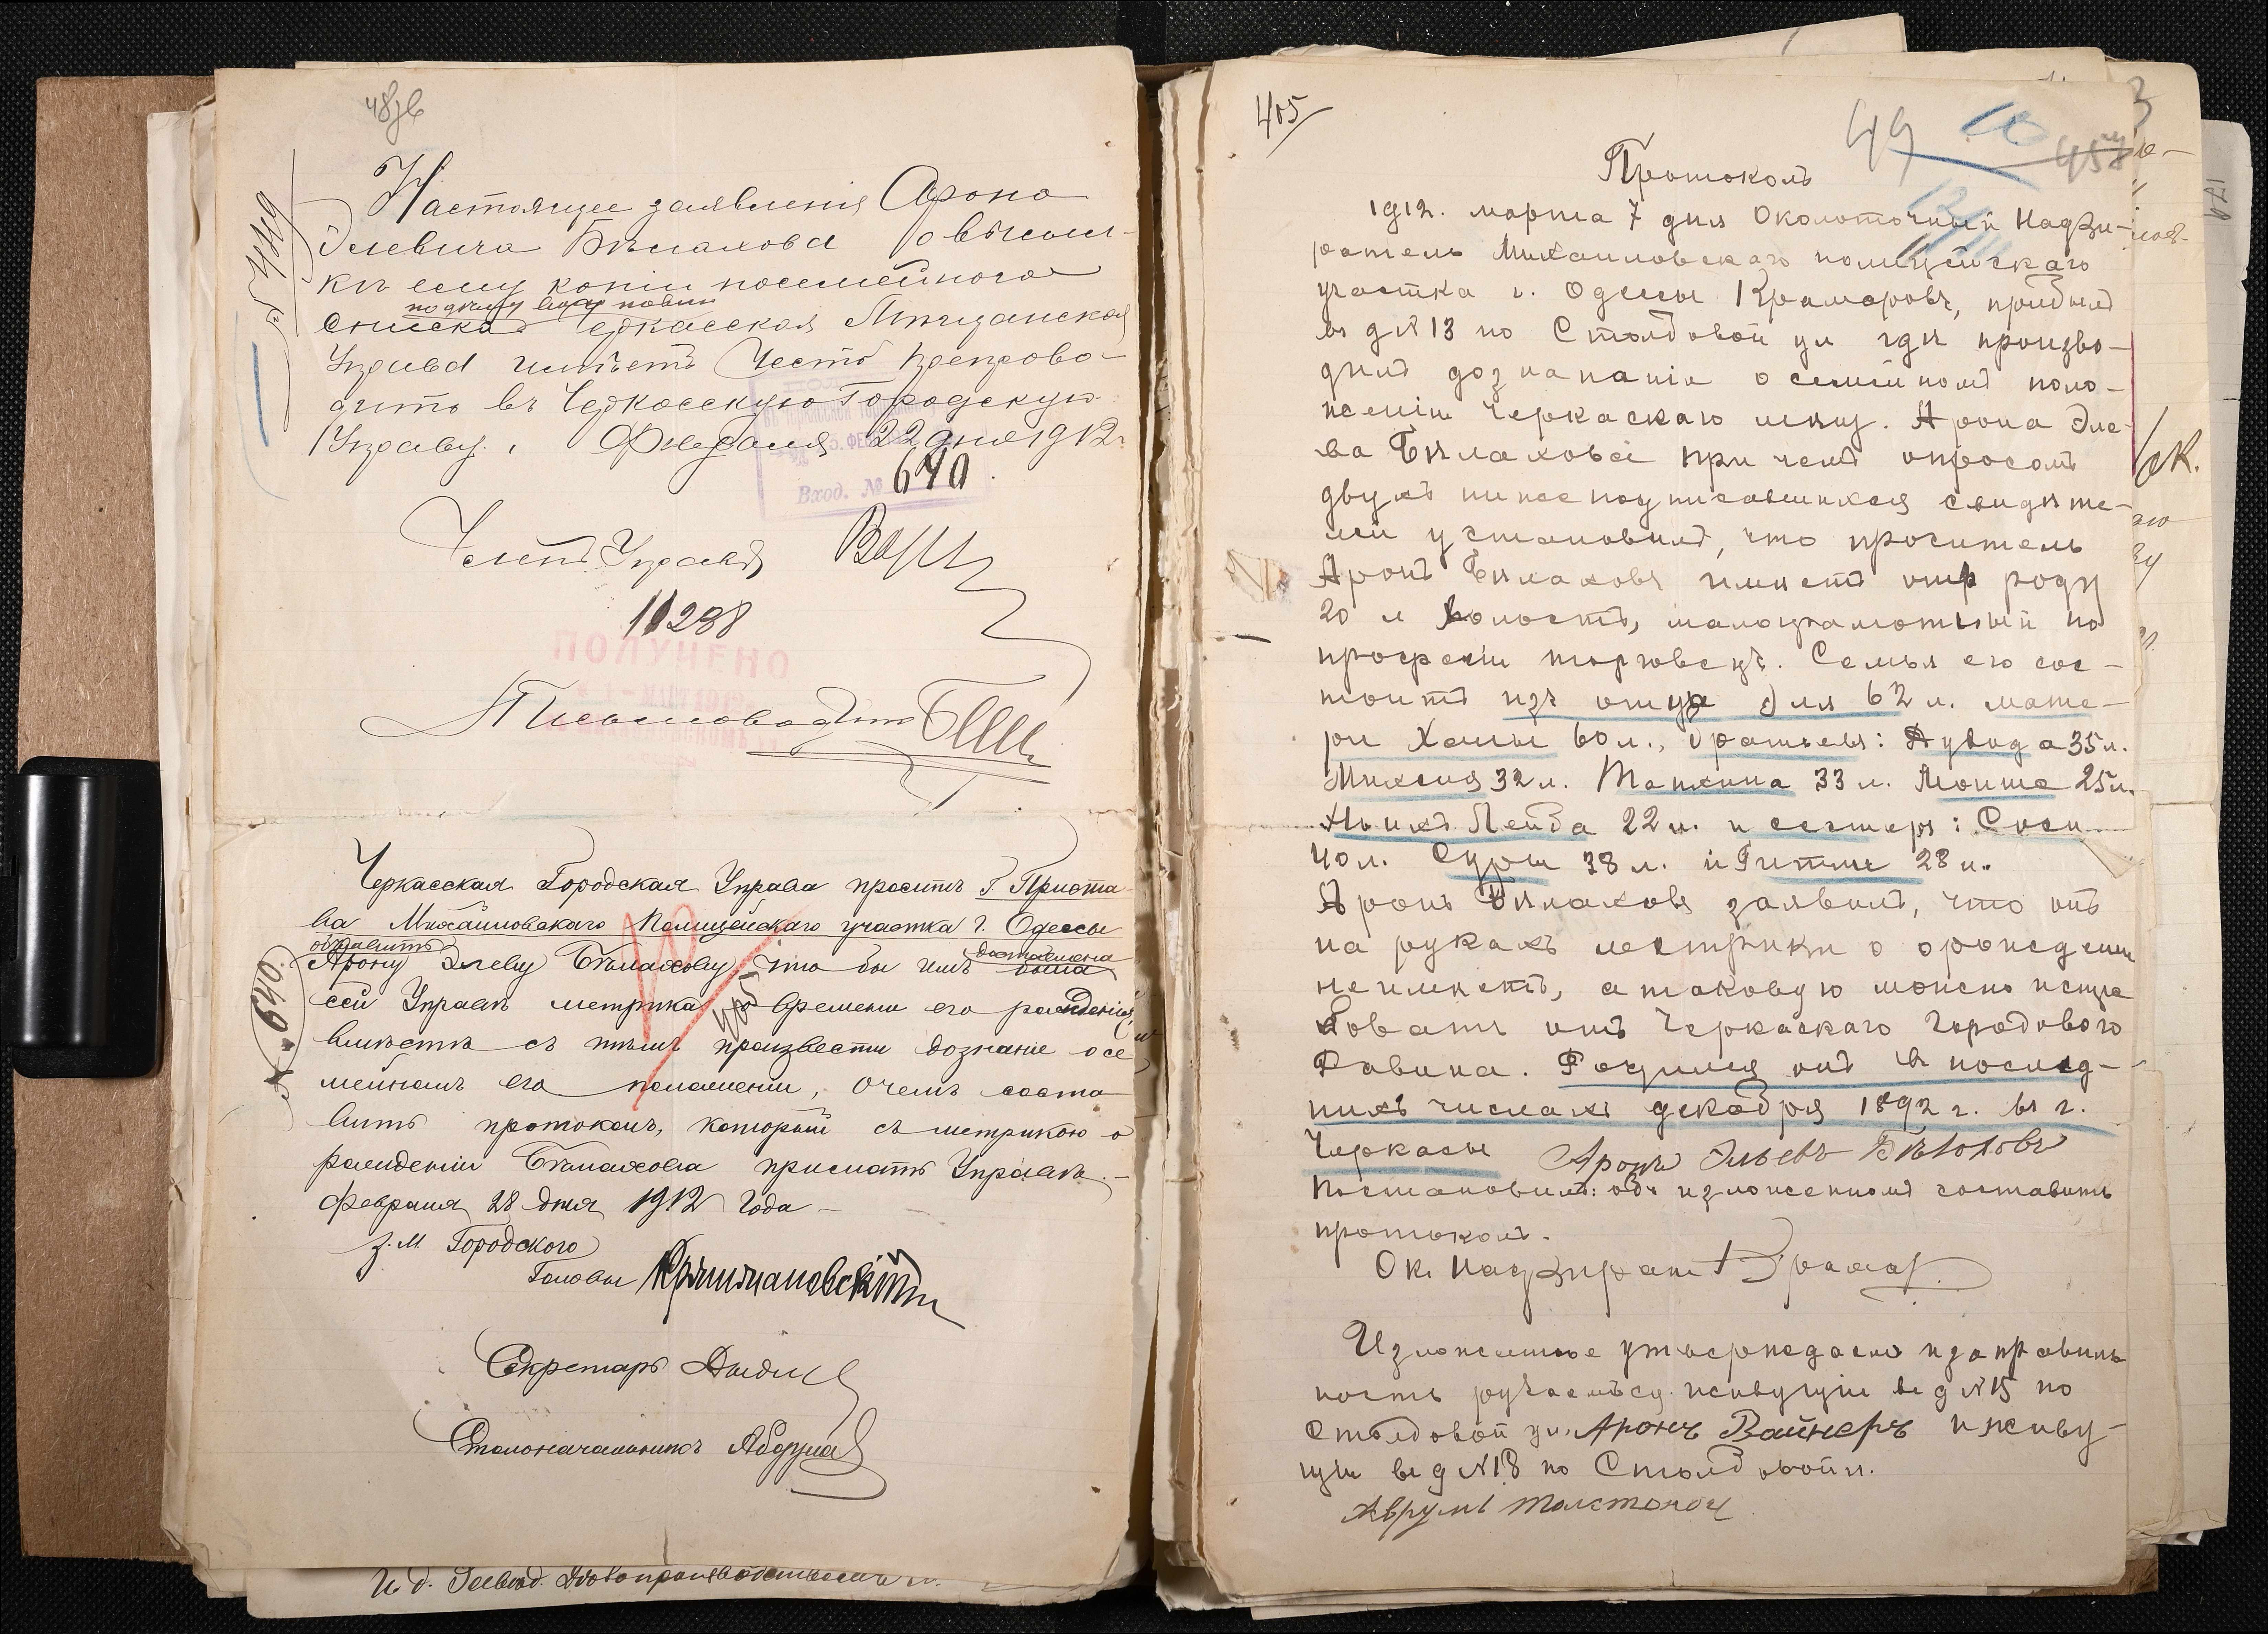 48 об
Настоящее заявленія Арона
Элевича Бѣлахова о высыл-
кѣ ему копіи посемейного
списка Черкасская Мѣщанская
Управа имѣетъ честь препрово-
дить въ Черкасскую Городскую
Управу. Февраля 22 дня 1912 г.
Вход. № 640
Членъ Управы
11288
ПОЛУЧЕНО
Письмоводит
Черкасская Городская Управа проситъ Г. Приста-
ва Михайловскаго Полицейскаго участка г. Одессы
объявить
Арону Элеву Бѣлахову, что бы имъ доставлена была
сей Управѣ метрика о времени его рожденія,
вмѣстѣ съ тѣмъ произвести дознаніе о се-
мейномъ его положеніи, о чемъ соста-
вить протоколъ, который съ метрикою о
рожденіи Бѣлахова прислать Управѣ.-
Февраля 28 дня 1912 года -
№ 640.
З. М. Городского
Головы
Секретарь
Столоначальникъ
И. д.
405
49
Протоколъ
1912. марта 7 дня Околоточный Надзи-
ратель Михайловскаго полицейскаго
участка г. Одессы Крамаровъ, прибылъ
въ д № 13 по Столбовой ул гдѣ произво-
дилъ дознаканіе о семейномъ поло-
женіи Черкаскаго мѣщ. Арона Эле-
ва Бѣлахова при чемъ опросомъ
двухъ нижеподписавшихся свидѣте-
лей установилъ, что проситель
Аронъ Бѣлаховъ имѣетъ отъ роду
20 л холостъ, малограмотный по
професіи торговецъ. Семья его сос-
тоитъ изъ отца Эля 62 л. мате-
ри Ханы 60 л., братьевъ: Дувида 35 л.
Михеля 32 л. Танхина 33 л. Моише 25 л.
Хыикъ Лейба 22 л. и сестеръ: Соси
40 л. Суры 38 л. и Гитли 28 л.
Аронъ Бѣлаховъ заявилъ, что онъ
на рукахъ метрики о орождении
неимѣетъ, а таковую можно истре
бовать отъ Черкаскаго Городового
Равина. Родился онъ въ послѣд-
нихъ числахъ декабря 1892 г. въ г.
Черкасы Аронъ Эльевъ Бѣлоховъ
Постановилъ: объ изложенномъ составить
протоколъ.
Ок. Надзират Крамар
Изложенное утверждаемъ и за правиль
ность ручаемъся живущій въ д № 15 по
Столбовой ул. Аронъ Вайнеръ и живу-
щій въ д № 18 по Столбовой ул.
Аврумъ